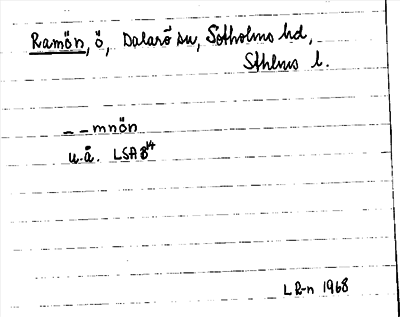 Ramön, ö, Dalarö sn, Sotholms hd,
Sthlms l.
– – mnön
u.å. LSA B 14
L R-n 1968